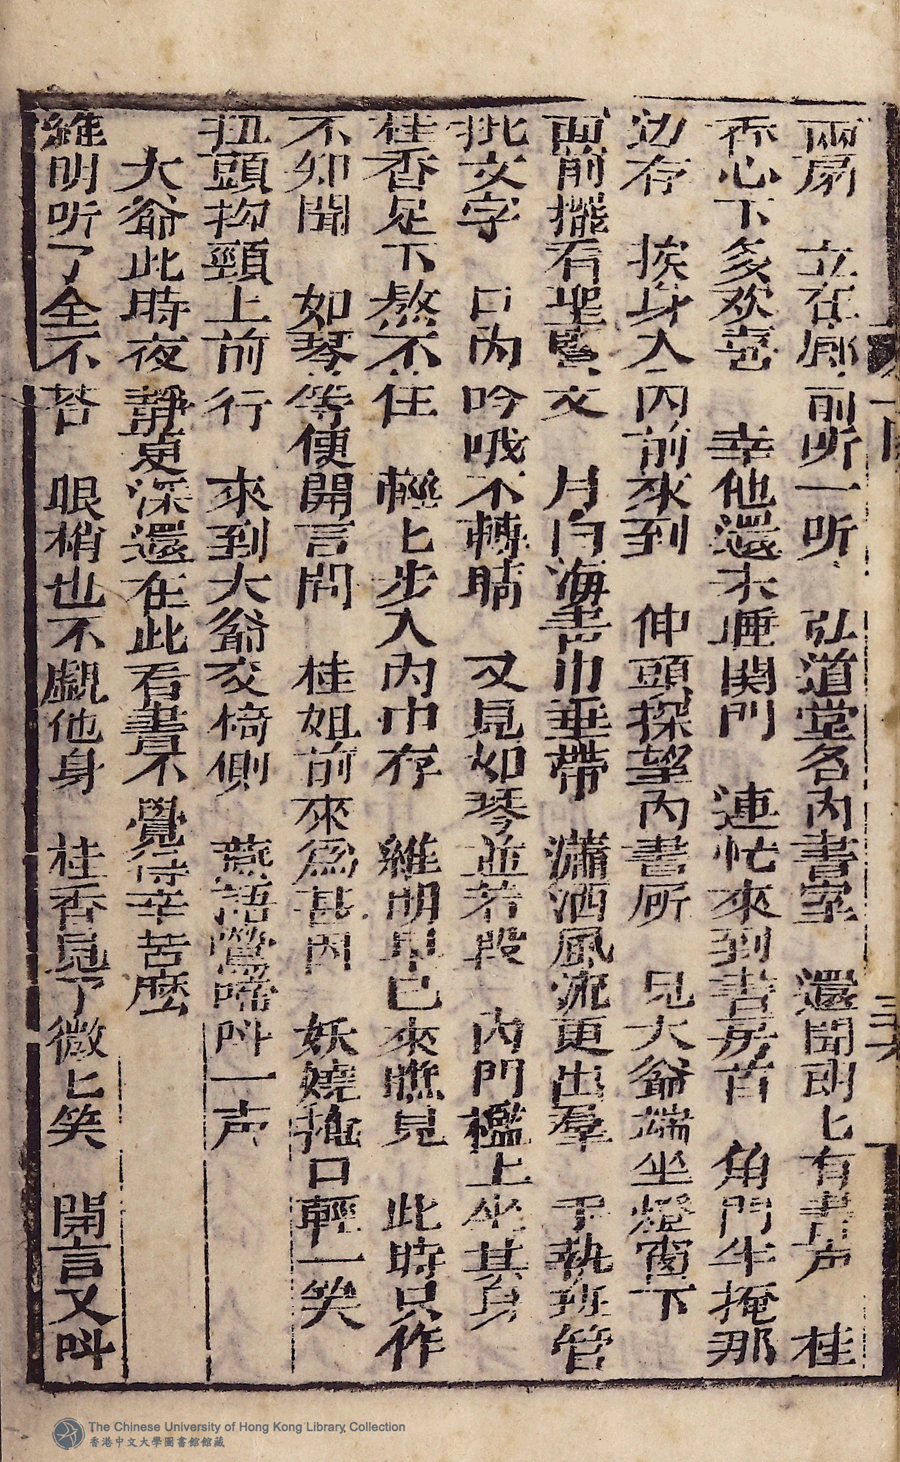 兩扇　立在廊前听一听　弘道堂名內書室　還聞朗匕有書声　桂
香心下多欢喜　幸他還未睡関門　連忙來到書房首　角門半掩那
边存　挨身入內前來到　伸頭探望內書所　見大爺端坐燈窗下
面前擺看聖賢文　月白海青巾垂帶　瀟洒風流更出羣　手執班管
批文字　口內吟哦不轉睛　又見如琴並若段　內門檻上坐其身
桂香足下熬不住　輕匕步入內中存　維明早已來瞧見　此時只作
不知聞　如琴等便開言問　桂姐前來為甚因　妖嬈掩口輕一笑
扭頭拗頸上前行　來到大爺交椅側　燕語鶯啼呌一声
大爺此時夜靜更深還在此看書不覺得辛苦麼
維明听了全不荅　眼梢也不覷他身　桂香見了微匕笑　開言又呌
三十六
The Chinese University of Hong Kong Library Collection
香港中文大學圖書館館藏